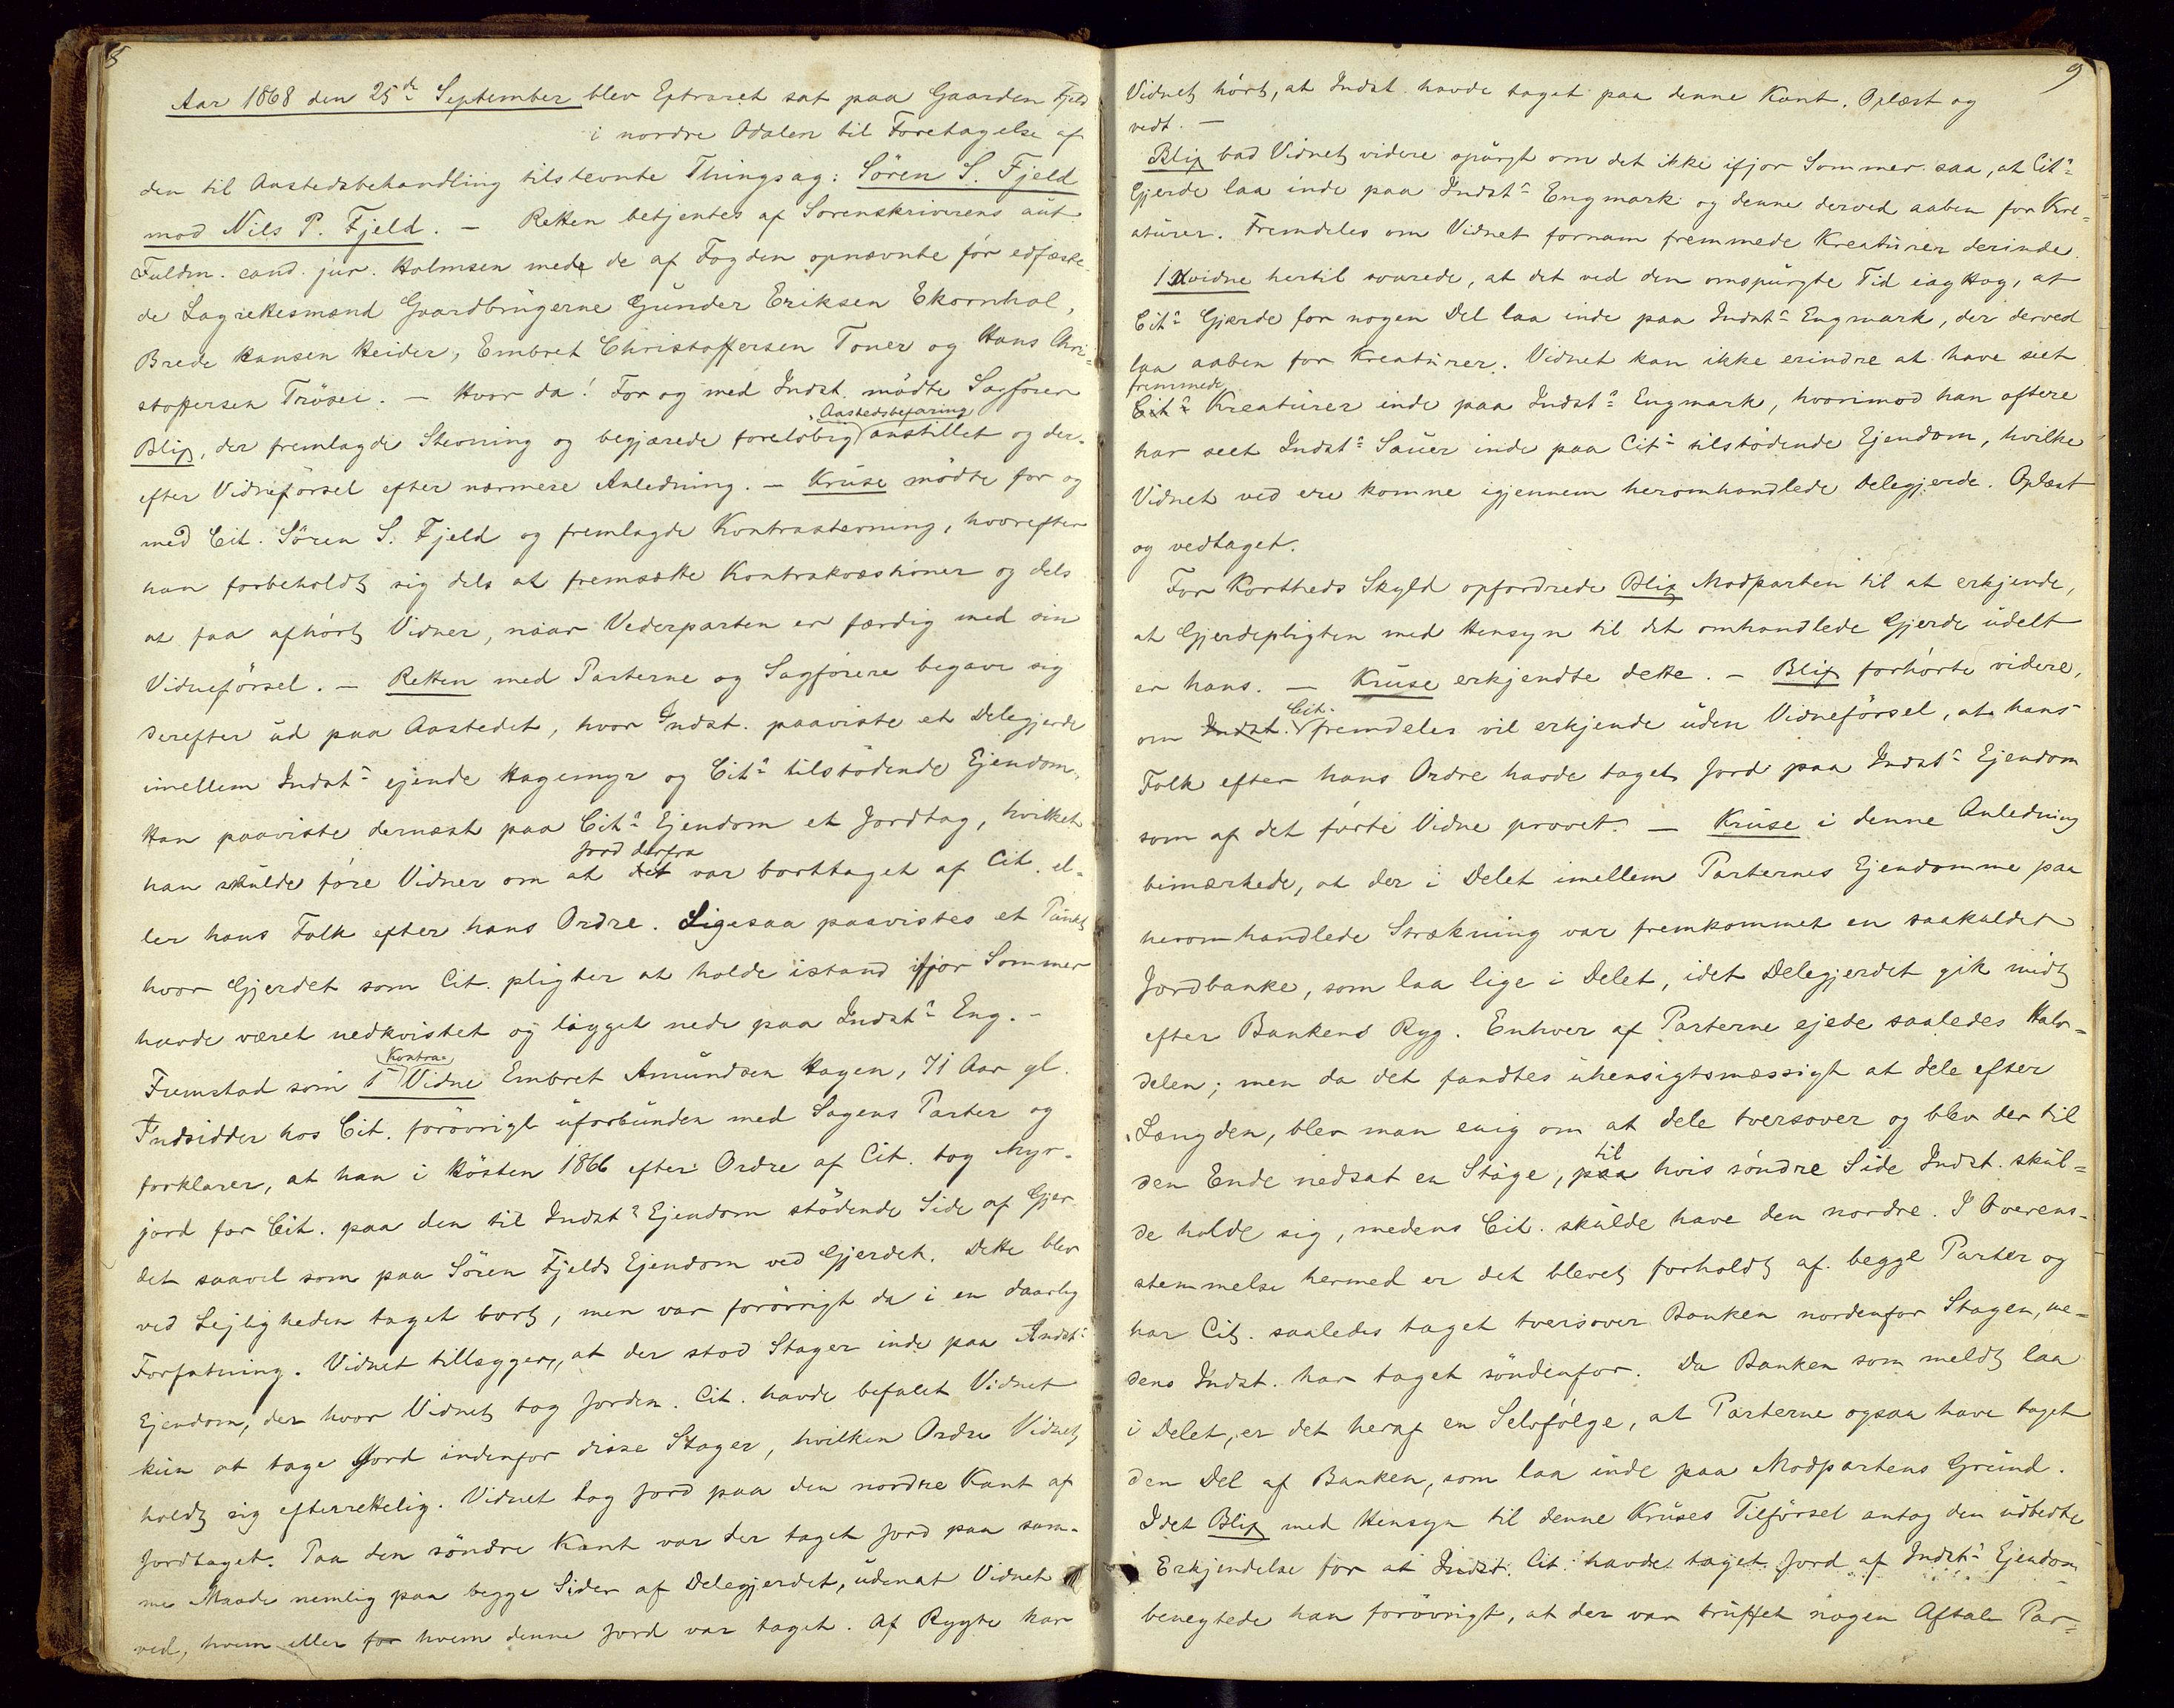 Aar 1868 den 25de September blev Extraret sat paa Gaarden Fjeld
i nordre Odalen til Foretagelse af
den til Aastedsbehandling tilstevnte Thingsag: Sören S. Fjeld
mod Nils P. Fjeld. — Retten betjentes af Sorenskriverens aut.
Fuldm. cand. jur. Holmsen med de af Fogden opnævnte för edfæste-
de Lagrettesmænd Gaardbrugerne Gunder Eriksen Ekornhol,
Brede Hansen Heider, Embret Christoffersen Toner og Hans Chri-
stoffersen Tröseie. — Hvor da! For og med Indst. mödte Sagförer
Aastedsbefaring
Blix, der fremlagde Stevning og begjærede forelöbig anstillet og der-
efter Vidneförsel efter nærmere Anledning. — Kruse mödte for og
med Cit. Sören S. Fjeld og fremlagde Kontrastevning, hvorefter
han forbeholdt sig dels at fremsætte Kontrakvæstioner og dels
at faa afhört Vidner, naar Vederparten er færdig med sin
Vidneförsel. — Retten med Parterne og Sagförere begave sig
derefter ud paa Aastedet, hvor Indst. paaviste et Delegjerde
imellem Indsts ejende Hagemyr og Cits tilstödende Ejendom.
Han paaviste dernæst paa Cits Ejendom et Jordtag, hvilket
Jord derfra
han skulde före Vidner om at det var borttaget af Cit. el-
ler hans Folk efter hans Ordre. Ligesaa paavistes et Punkt
hvor Gjerdet som Cit. pligter at holde istand ifjor Sommer
havde været nedkvistet og ligget nede paa Indsts Eng. —
Kontra-
Fremstod som 1 Vidne Embret Amundsen Hagen, 71 Aar gl.
Indsidder hos Cit. forövrigt uforbunden med Sagens Parter og
forklarer, at han i Hösten 1866 efter Ordre af Cit. tog Myr-
jord for Cit. paa den til Indsts Ejendom stödende Side af Gjer-
det saavel som paa Sören Fjelds Ejendom ved Gjerdet. Dette blev
ved Lejligheden taget bort, men var forövrigt da i en daarlig
Forfatning. Vidnet tillægger, at der stod Stager inde paa Indsts
Ejendom, der hvor Vidnet tog Jorden. Cit. havde befalet Vidnet
kun at tage Jord indenfor disse Stager, hvilken Ordre Vidnet
holdt sig efterrettelig. Vidnet tog Jord paa den nordre Kant af
Jordtaget. Paa den söndre Kant var der taget Jord paa sam-
me Maade nemlig paa begge Sider af Delegjerdet, udenat Vidnet
ved, hvem eller for hvem denne Jord var taget. Af Rygte har
9
Vidnet hört, at Indst. havde taget paa denne Kant. Oplæst og
vedt. —
Blix bad Vidnet videre spurgt om det ikke ifjor Sommer saa, at Cits
Gjerde laa inde paa Indsts Engmark og denne derved aaben for Kre-
aturer. Fremdeles om Vidnet fornam fremmede Kreaturer derinde.
1 Kvidne hertil svarede, at det ved den omspurgte Tid iagttog, at
Cits Gjærde for nogen Del laa inde paa Indsts Engmark, der derved
laa aaben for Kreaturer. Vidnet kan ikke erindre at have seet
fremmede
Cits Kreaturer inde paa Indsts Engmark, hvorimod han oftere
har seet Indsts Sauer inde paa Cits tilstödende Ejendom, hvilke
Vidnet ved ere komne igjennem heromhandlede Delegjerde. Oplæst
og vedtaget.
For Kortheds Skyld opfordrede Blix Modparten til at erkjende,
at Gjerdepligten med Hensyn til det omhandlede Gjerde udelt
er hans. — Kruse erkjendte dette. — Blix forhörte videre,
Cit.
om Indst. fremdeles vil erkjende uden Vidneförsel, at hans
Folk efter hans Ordre havde taget Jord paa Indsts Ejendom
som af det förte Vidne provet. — Kruse i denne Anledning
bemærkede, at der i Delet imellem Parternes Ejendomme paa
heromhandlede Strækning var fremkommet en saakaldet
Jordbanke, som laa lige i Delet, idet Delegjerdet gik midt
efter Bankens Ryg. Enhver af Parterne ejede saaledes Halv-
delen; men da det fandtes uhensigtsmæssigt at dele efter
Længden, blev man enig om at dele tversover og blev der til
til
den Ende nedsat en Stage, paa hvis söndre Side Indst. skul-
de holde sig, medens Cit. skulde have den nordre. I Overens-
stemmelse hermed er det blevet forholdt af begge Parter og
har Cit. saaledes taget tversover Banken nordenfor Stagen, me-
dens Indst. har taget söndenfor. Da Banken som meldt laa
i Delet, er det heraf en Selvfölge, at Parterne ogsaa have taget
den Del af Banken, som laa inde paa Modpartens Grund.
Idet Blix med Hensyn til denne Kruses Tilförsel antog den udbedte
Erkjendelse for at Indst. Cit. havde taget Jord af Indsts Ejendom
benegtede han forövrigt, at der var truffet nogen Aftale Par-